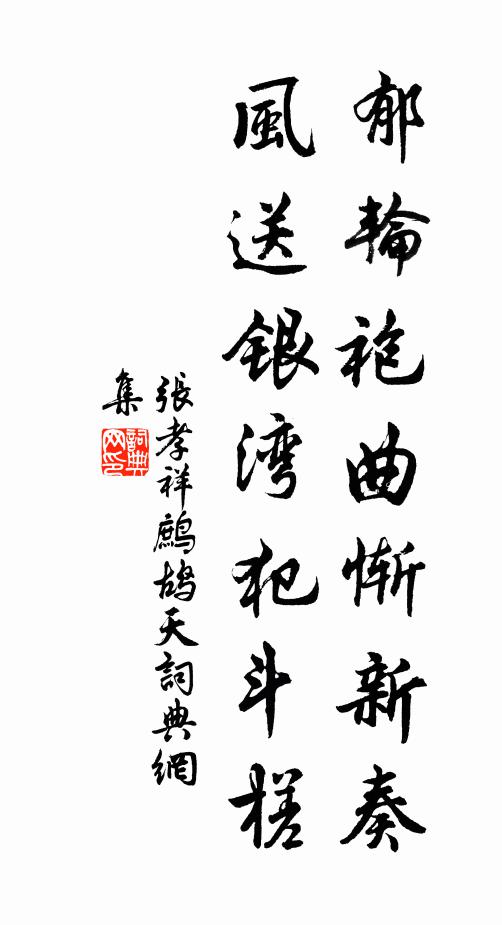 郁輪袍曲慚新奏
風送銀湾犯斗槎
張孝祥鷓鴣天詞典網
集
詞典网印